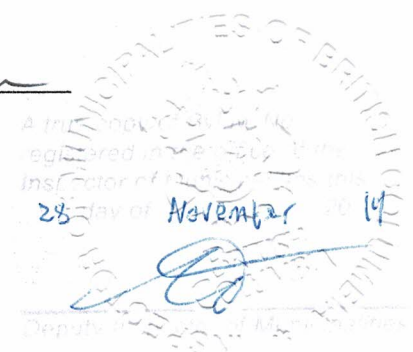 MUNICIPALITIES OF BRITISH
A true copy of By-law No.
registered in the office of the
Inspector of Municipalities this
28 day of November 20 14
Deputy Inspector of Municipalities